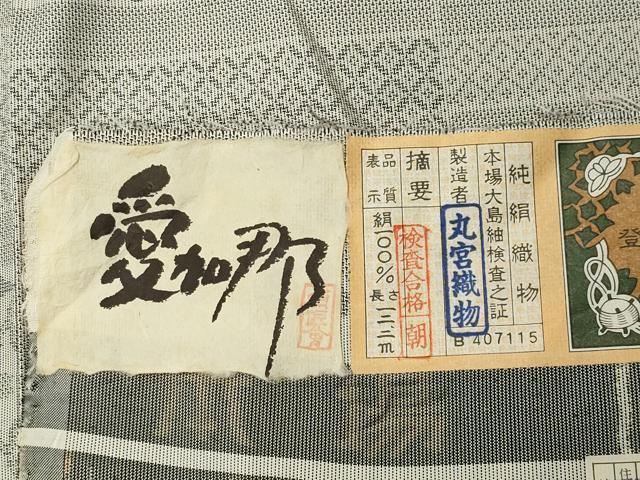 愛加那
純絹織物
本場大島紬検査之証
製造者
丸宮織物
B 407115
摘要
検査合格 朝
品質表示
絹一〇〇%
長さ一二・二m
登
住